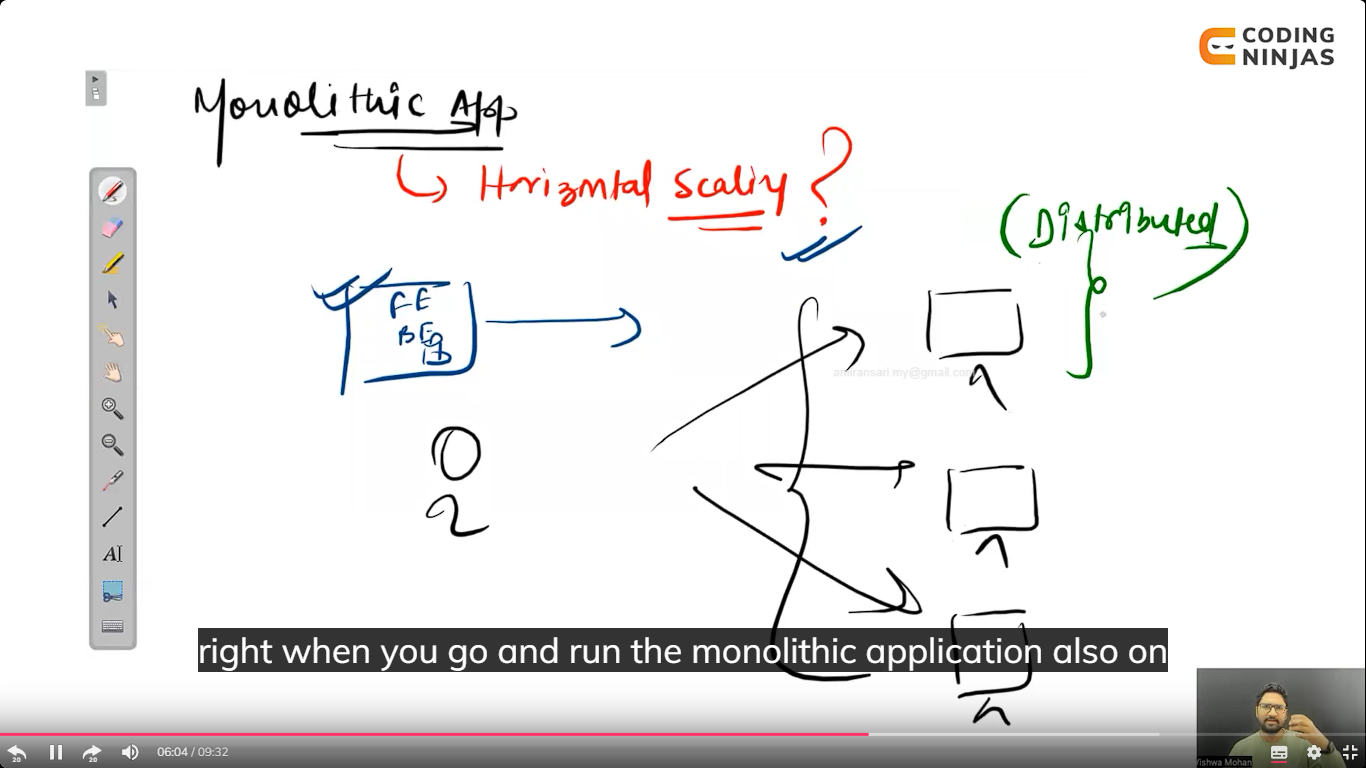 CODING
NINJAS
Monolithic App
Horizontal Scaling ?
(Distributed)
FE
BE
DB
amiransari.my@gmail.com
right when you go and run the monolithic application also on
20
20
06:04 / 09:32
Vishwa Mohan